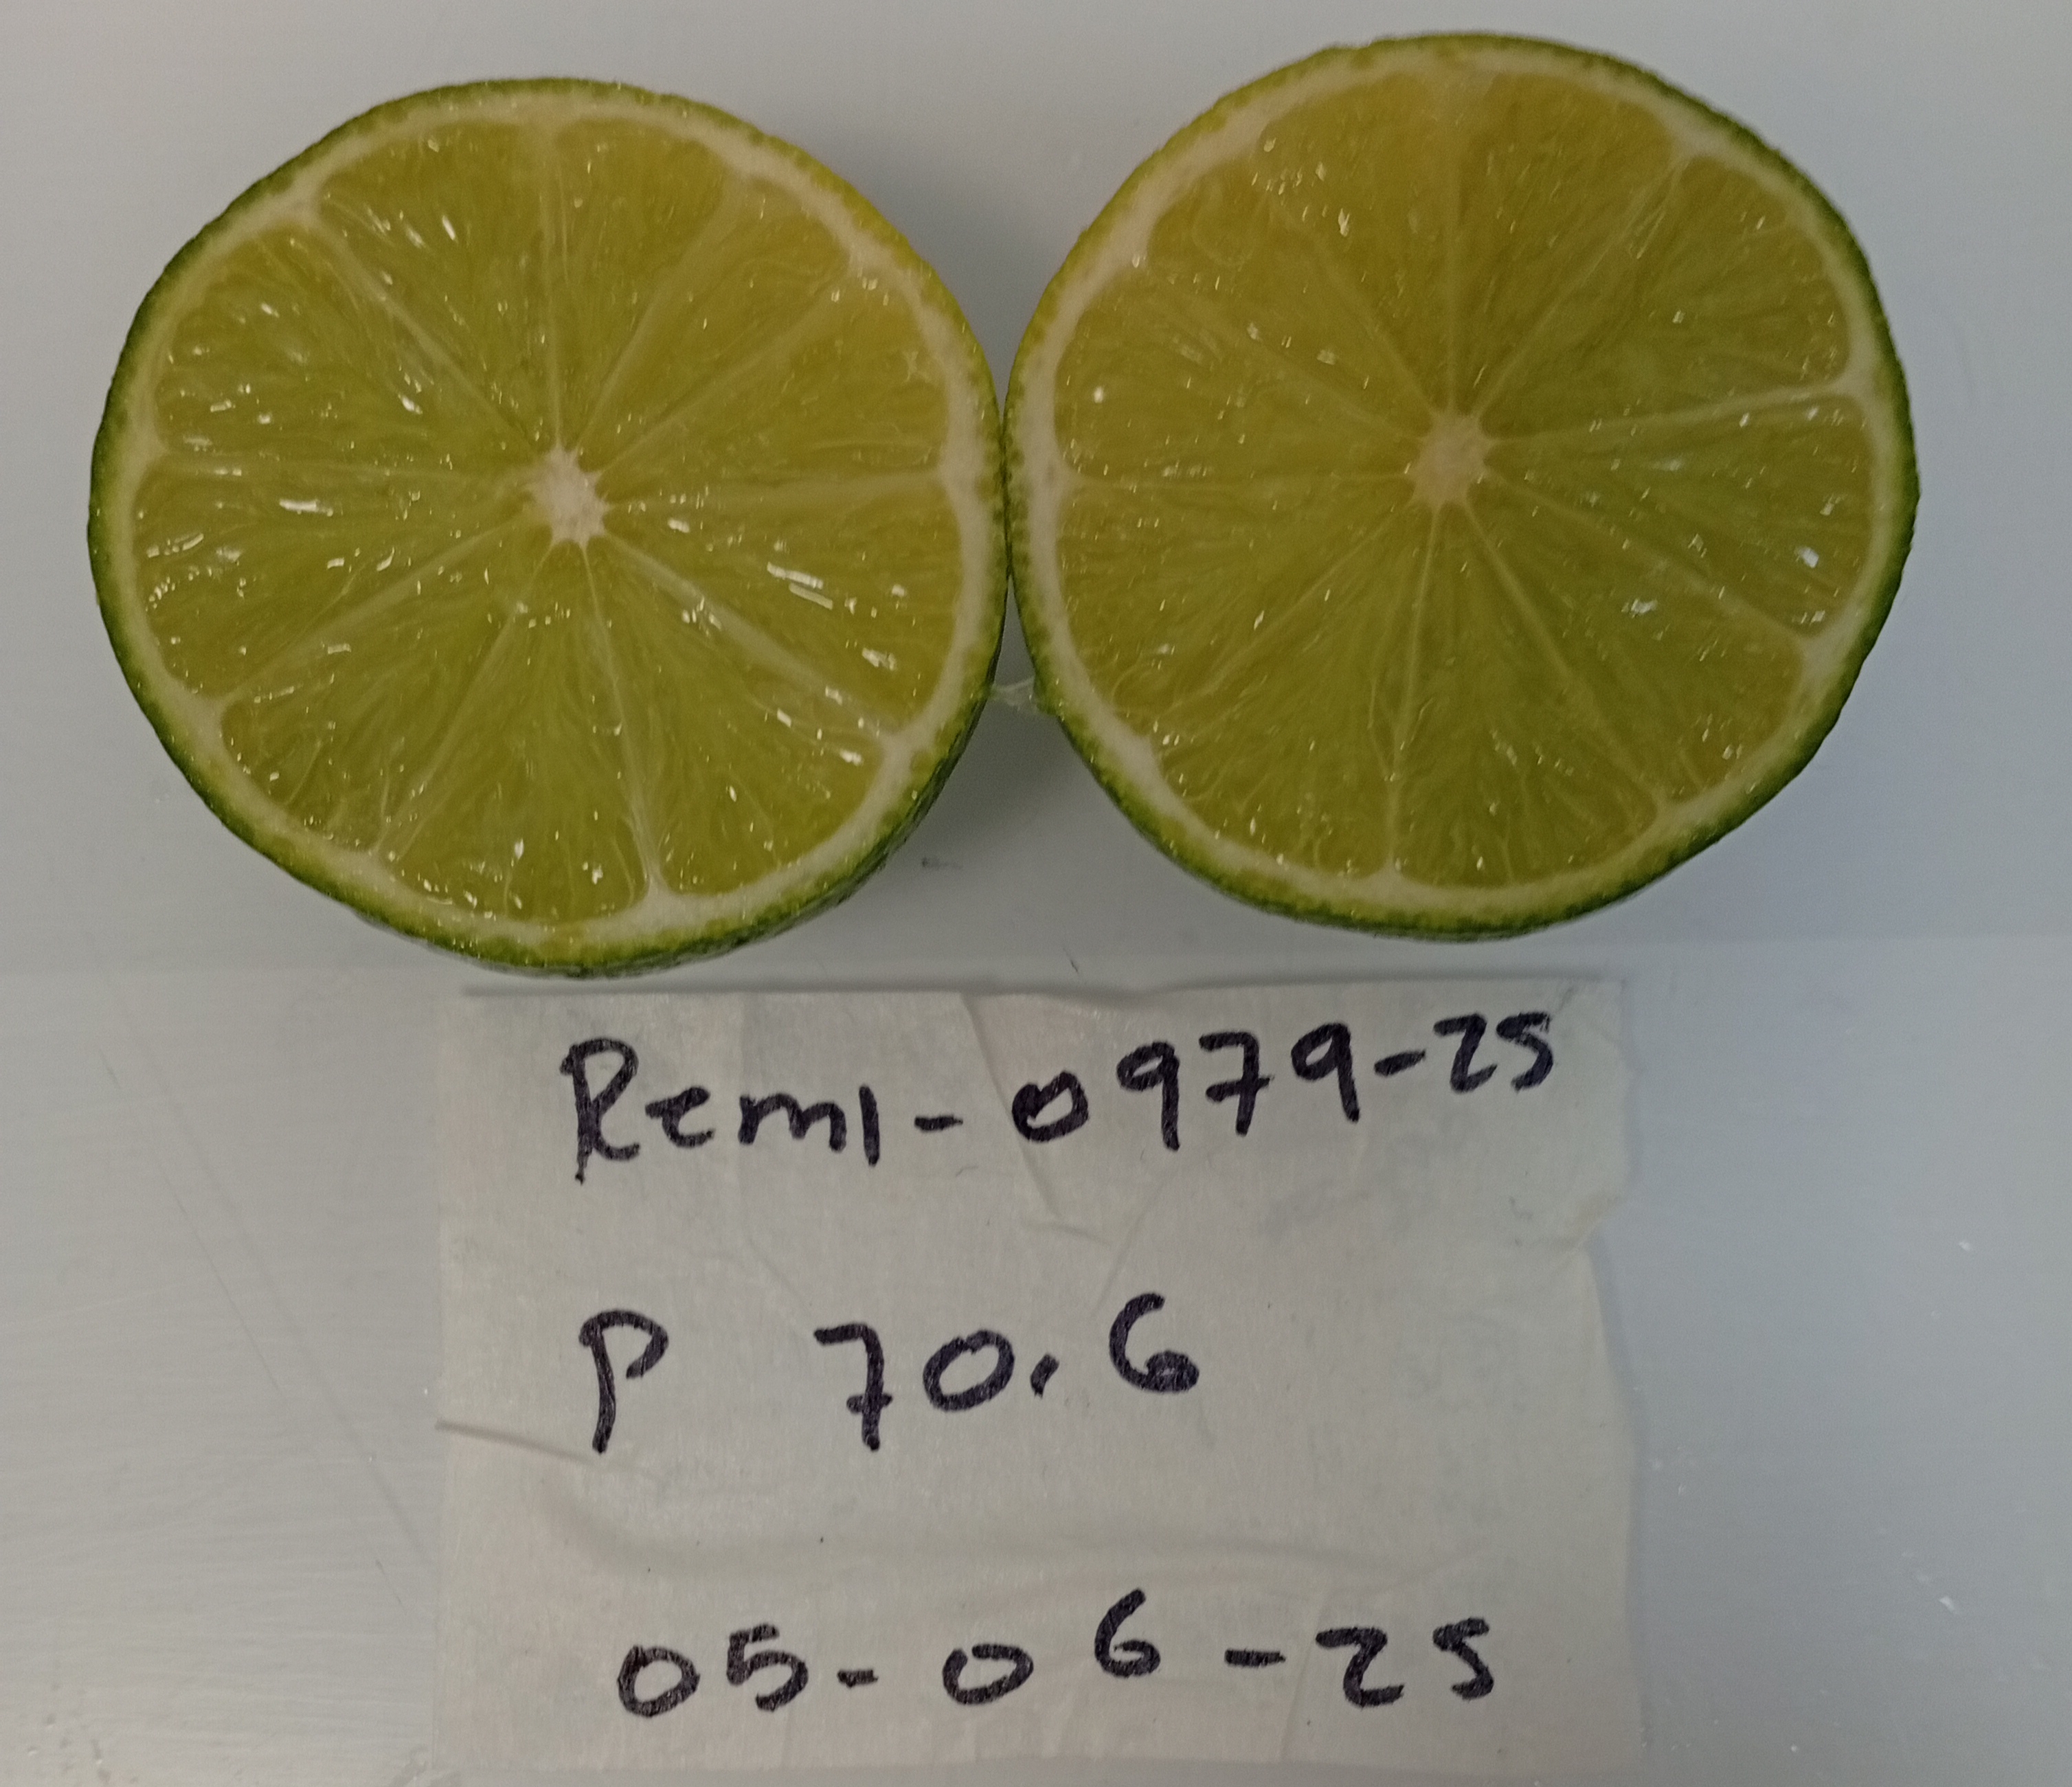 Remi-0979-25
P 70.6
05-06-25